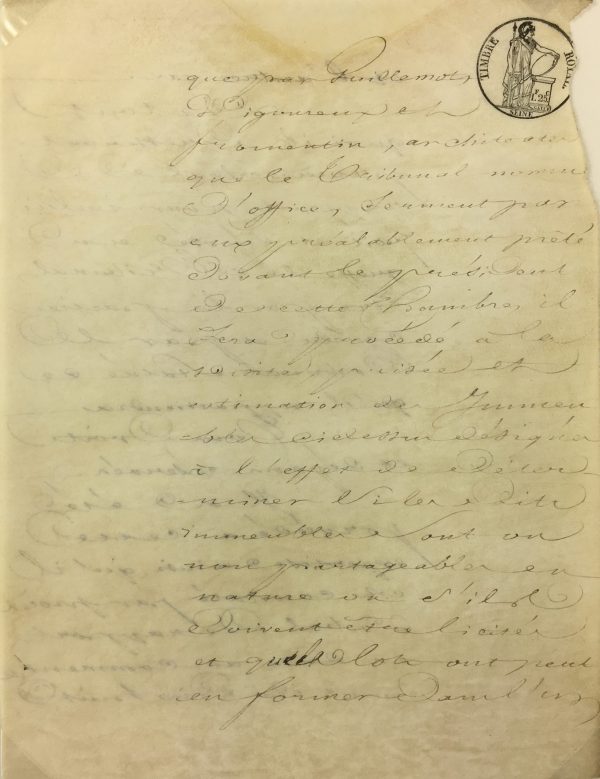 TIMBRE ROYAL
1.25
SEINE
que par Guillemot,
Vigoureux et
fromentin, architectes
que le Tribunal nomme
D'office, Serment par
eux préalablement prêté
Devant le président
De cette Chambre, il
Sera procédé à la
visite, prisée et
estimation des Immeu
bles cidessus désignés
à l'effet de Déter
miner Si les Dits
immeubles Sont ou
non partageables en
nature ou S'ils
Doivent être licités
et quels lots ont peut
en former Dans l'un